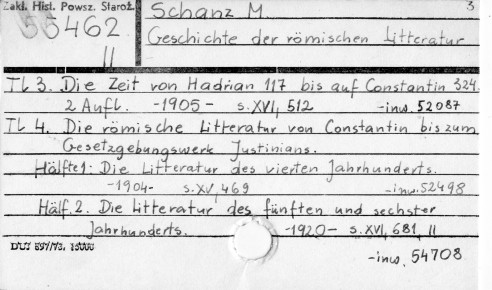 Zakł. Hist. Powsz. Staroż.
Schanz M.
3
55462
II
Geschichte der römischen Litteratur
Tl 3. Die Zeit von Hadrian 117 bis auf Constantin 324.
2 Aufl. -1905- s. XVI, 512 -inw. 52087
Tl 4. Die römische Litteratur von Constantin bis zum
Gesetzgebungswerk Justinians.
Hälfte 1: Die Litteratur des vierten Jahrhunderts.
-1904- s. XV, 469 -inw. 52498
Hälf. 2. Die Litteratur des fünften und sechster
Jahrhunderts. -1920- s. XVI, 681, II
-inw. 54708